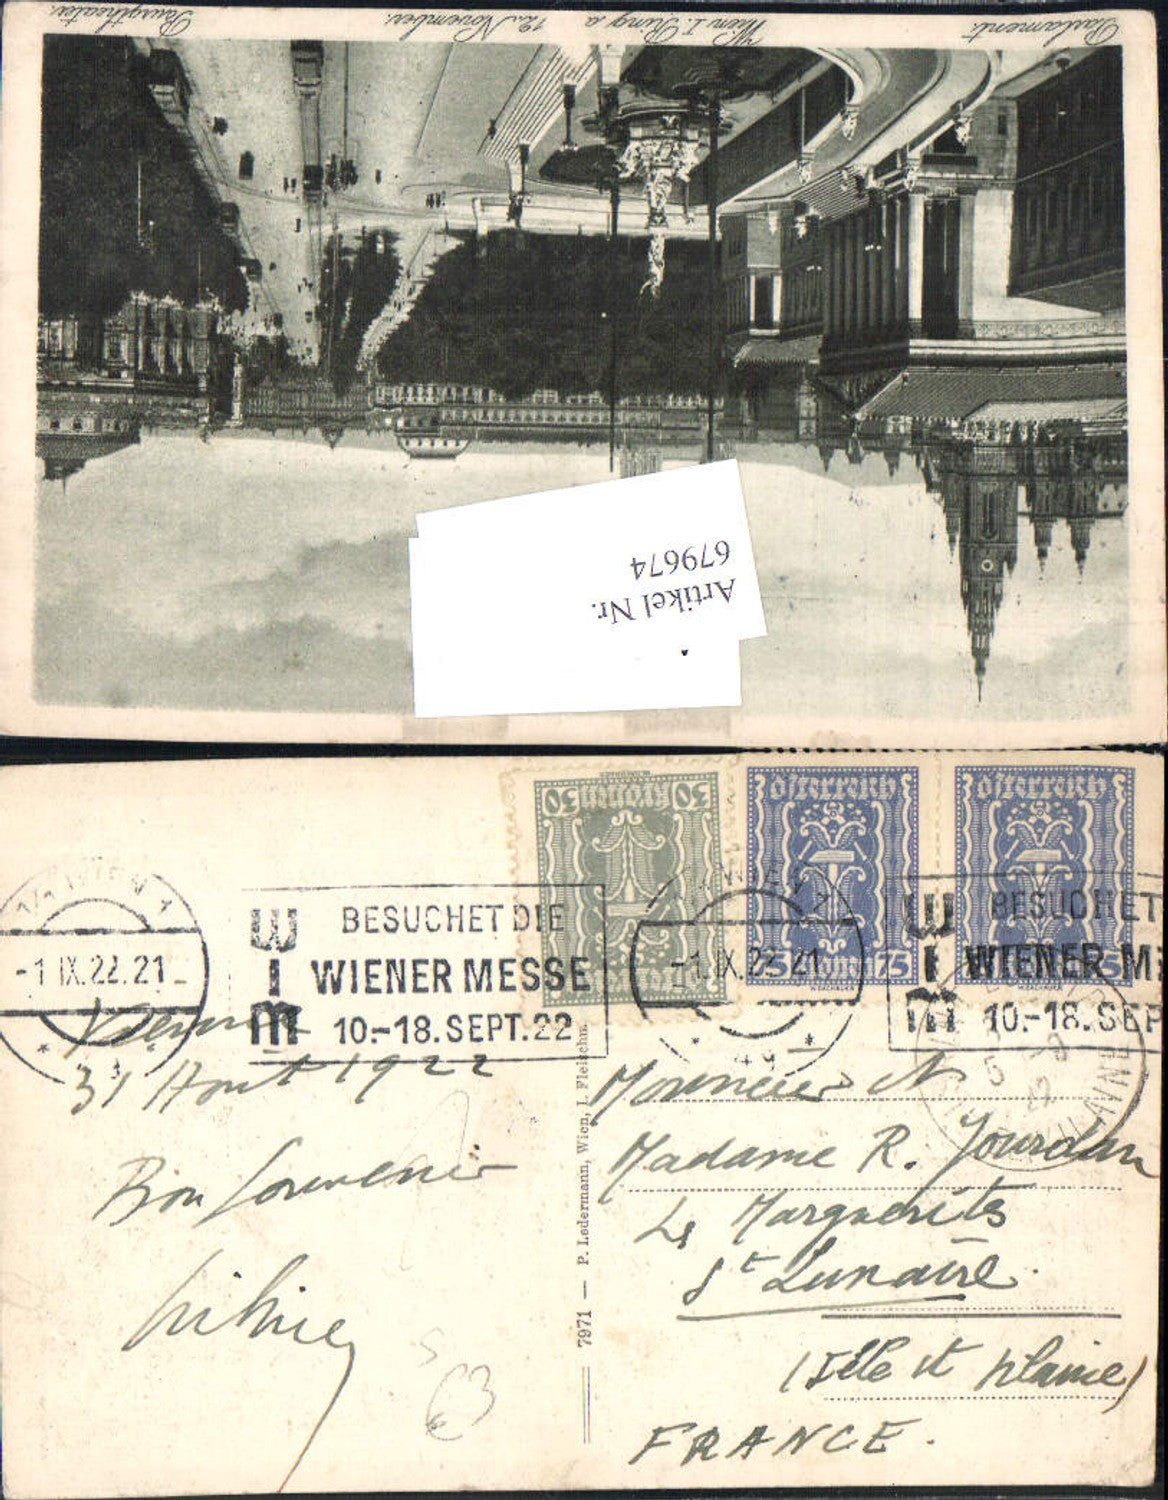 Burgtheater.
Wien I. Ring a. 12. November.
Parlament.
Artikel Nr.
679674
30 30
Österreich
75
Österreich
75
1/1 WIEN 1
-1.IX.22.21-
WIM
BESUCHET DIE
WIENER MESSE
10.-18. SEPT. 22
-1.IX.22 21
WIM
BESUCHET
WIENER ME
10.-18. SEP
Vienne
31 Aout 1922
Bon Souvenir
7971 — P. Ledermann, Wien, I. Fleischm.
Monsieur et
Madame R. Jourdan
Les Marguerites
St Lunaire.
(Ille et Vilaine)
FRANCE.
63